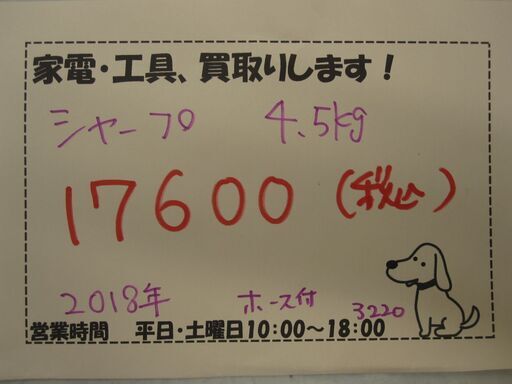 家電・工具、買取りします！
シャープ 4.5kg
17600 (税込)
2018年 ホース付 3220
営業時間 平日・土曜日10:00～18:00